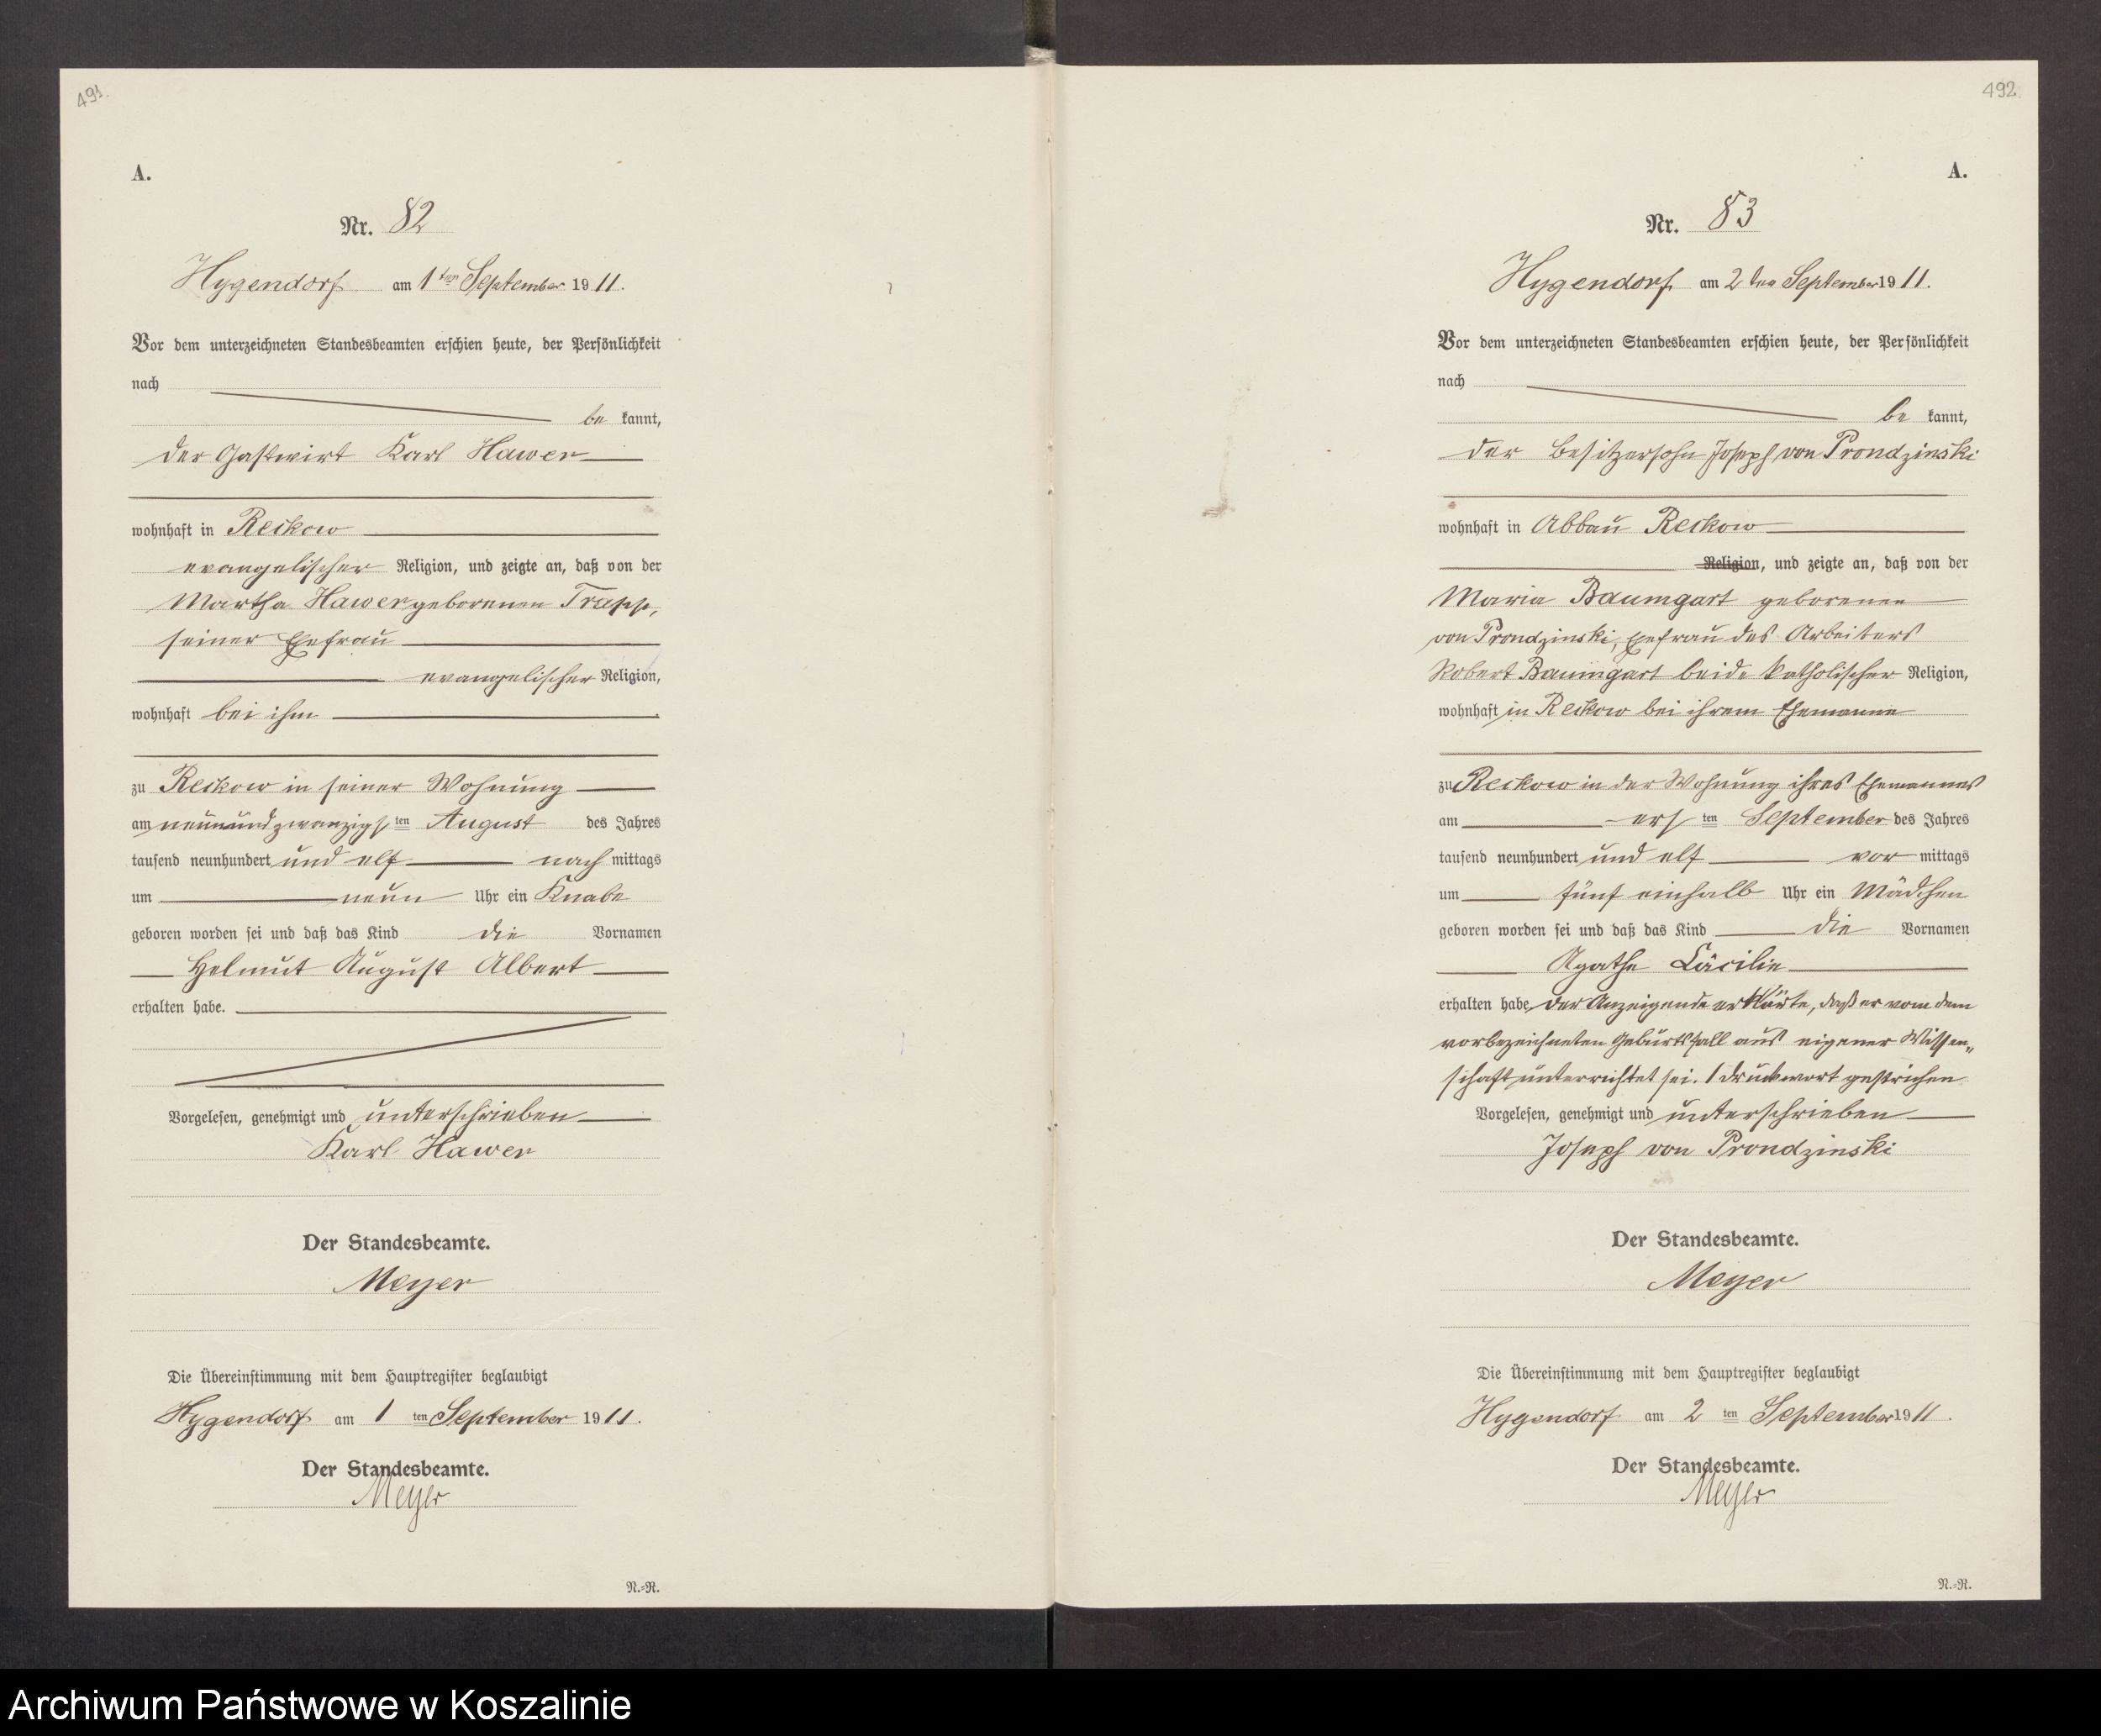 491.
A.
Nr. 82
Hygendorf am 1ten September 1911.
Vor dem unterzeichneten Standesbeamten erschien heute, der Persönlichkeit
nach
be kannt,
der Gastwirt Karl Hawer
wohnhaft in Reckow
evangelischer Religion, und zeigte an, daß von der
Martha Hawer geborenen Trapp,
seiner Ehefrau
evangelischer Religion,
wohnhaft bei ihm
zu Reckow in seiner Wohnung
am neunundzwanzigsten August des Jahres
tausend neunhundert und elf nach mittags
um neun Uhr ein Knabe
geboren worden sei und daß das Kind die Vornamen
Helmut August Albert
erhalten habe.
Vorgelesen, genehmigt und unterschrieben
Karl Hawer
Der Standesbeamte.
Meyer
Die Übereinstimmung mit dem Hauptregister beglaubigt
Hygendorf am 1 ten September 1911.
Der Standesbeamte.
Meyer
N.=N.
492
A.
Nr. 83
Hygendorf am 2ten September 1911.
Vor dem unterzeichneten Standesbeamten erschien heute, der Persönlichkeit
nach
be kannt,
der Besitzersohn Joseph von Prondzinski
wohnhaft in Abbau Reckow
Religion, und zeigte an, daß von der
Maria Baumgart geborenen
von Prondzinski, Ehefrau des Arbeiters
Robert Baumgart beide katholischer Religion,
wohnhaft in Reckow bei ihrem Ehemanne
zu Reckow in der Wohnung ihres Ehemannes
am ersten September des Jahres
tausend neunhundert und elf vor mittags
um fünf einhalb Uhr ein Mädchen
geboren worden sei und daß das Kind die Vornamen
Agathe Cäcilie
erhalten habe, der Anzeigende erklärte, daß er von dem
vorbezeichneten Geburtsfall aus eigener Wissen„
schaft unterrichtet sei. 1 Druckwort gestrichen
Vorgelesen, genehmigt und unterschrieben
Joseph von Prondzinski
Der Standesbeamte.
Meyer
Die Übereinstimmung mit dem Hauptregister beglaubigt
Hygendorf am 2 ten September 1911.
Der Standesbeamte.
Meyer
N.=N.
Archiwum Państwowe w Koszalinie